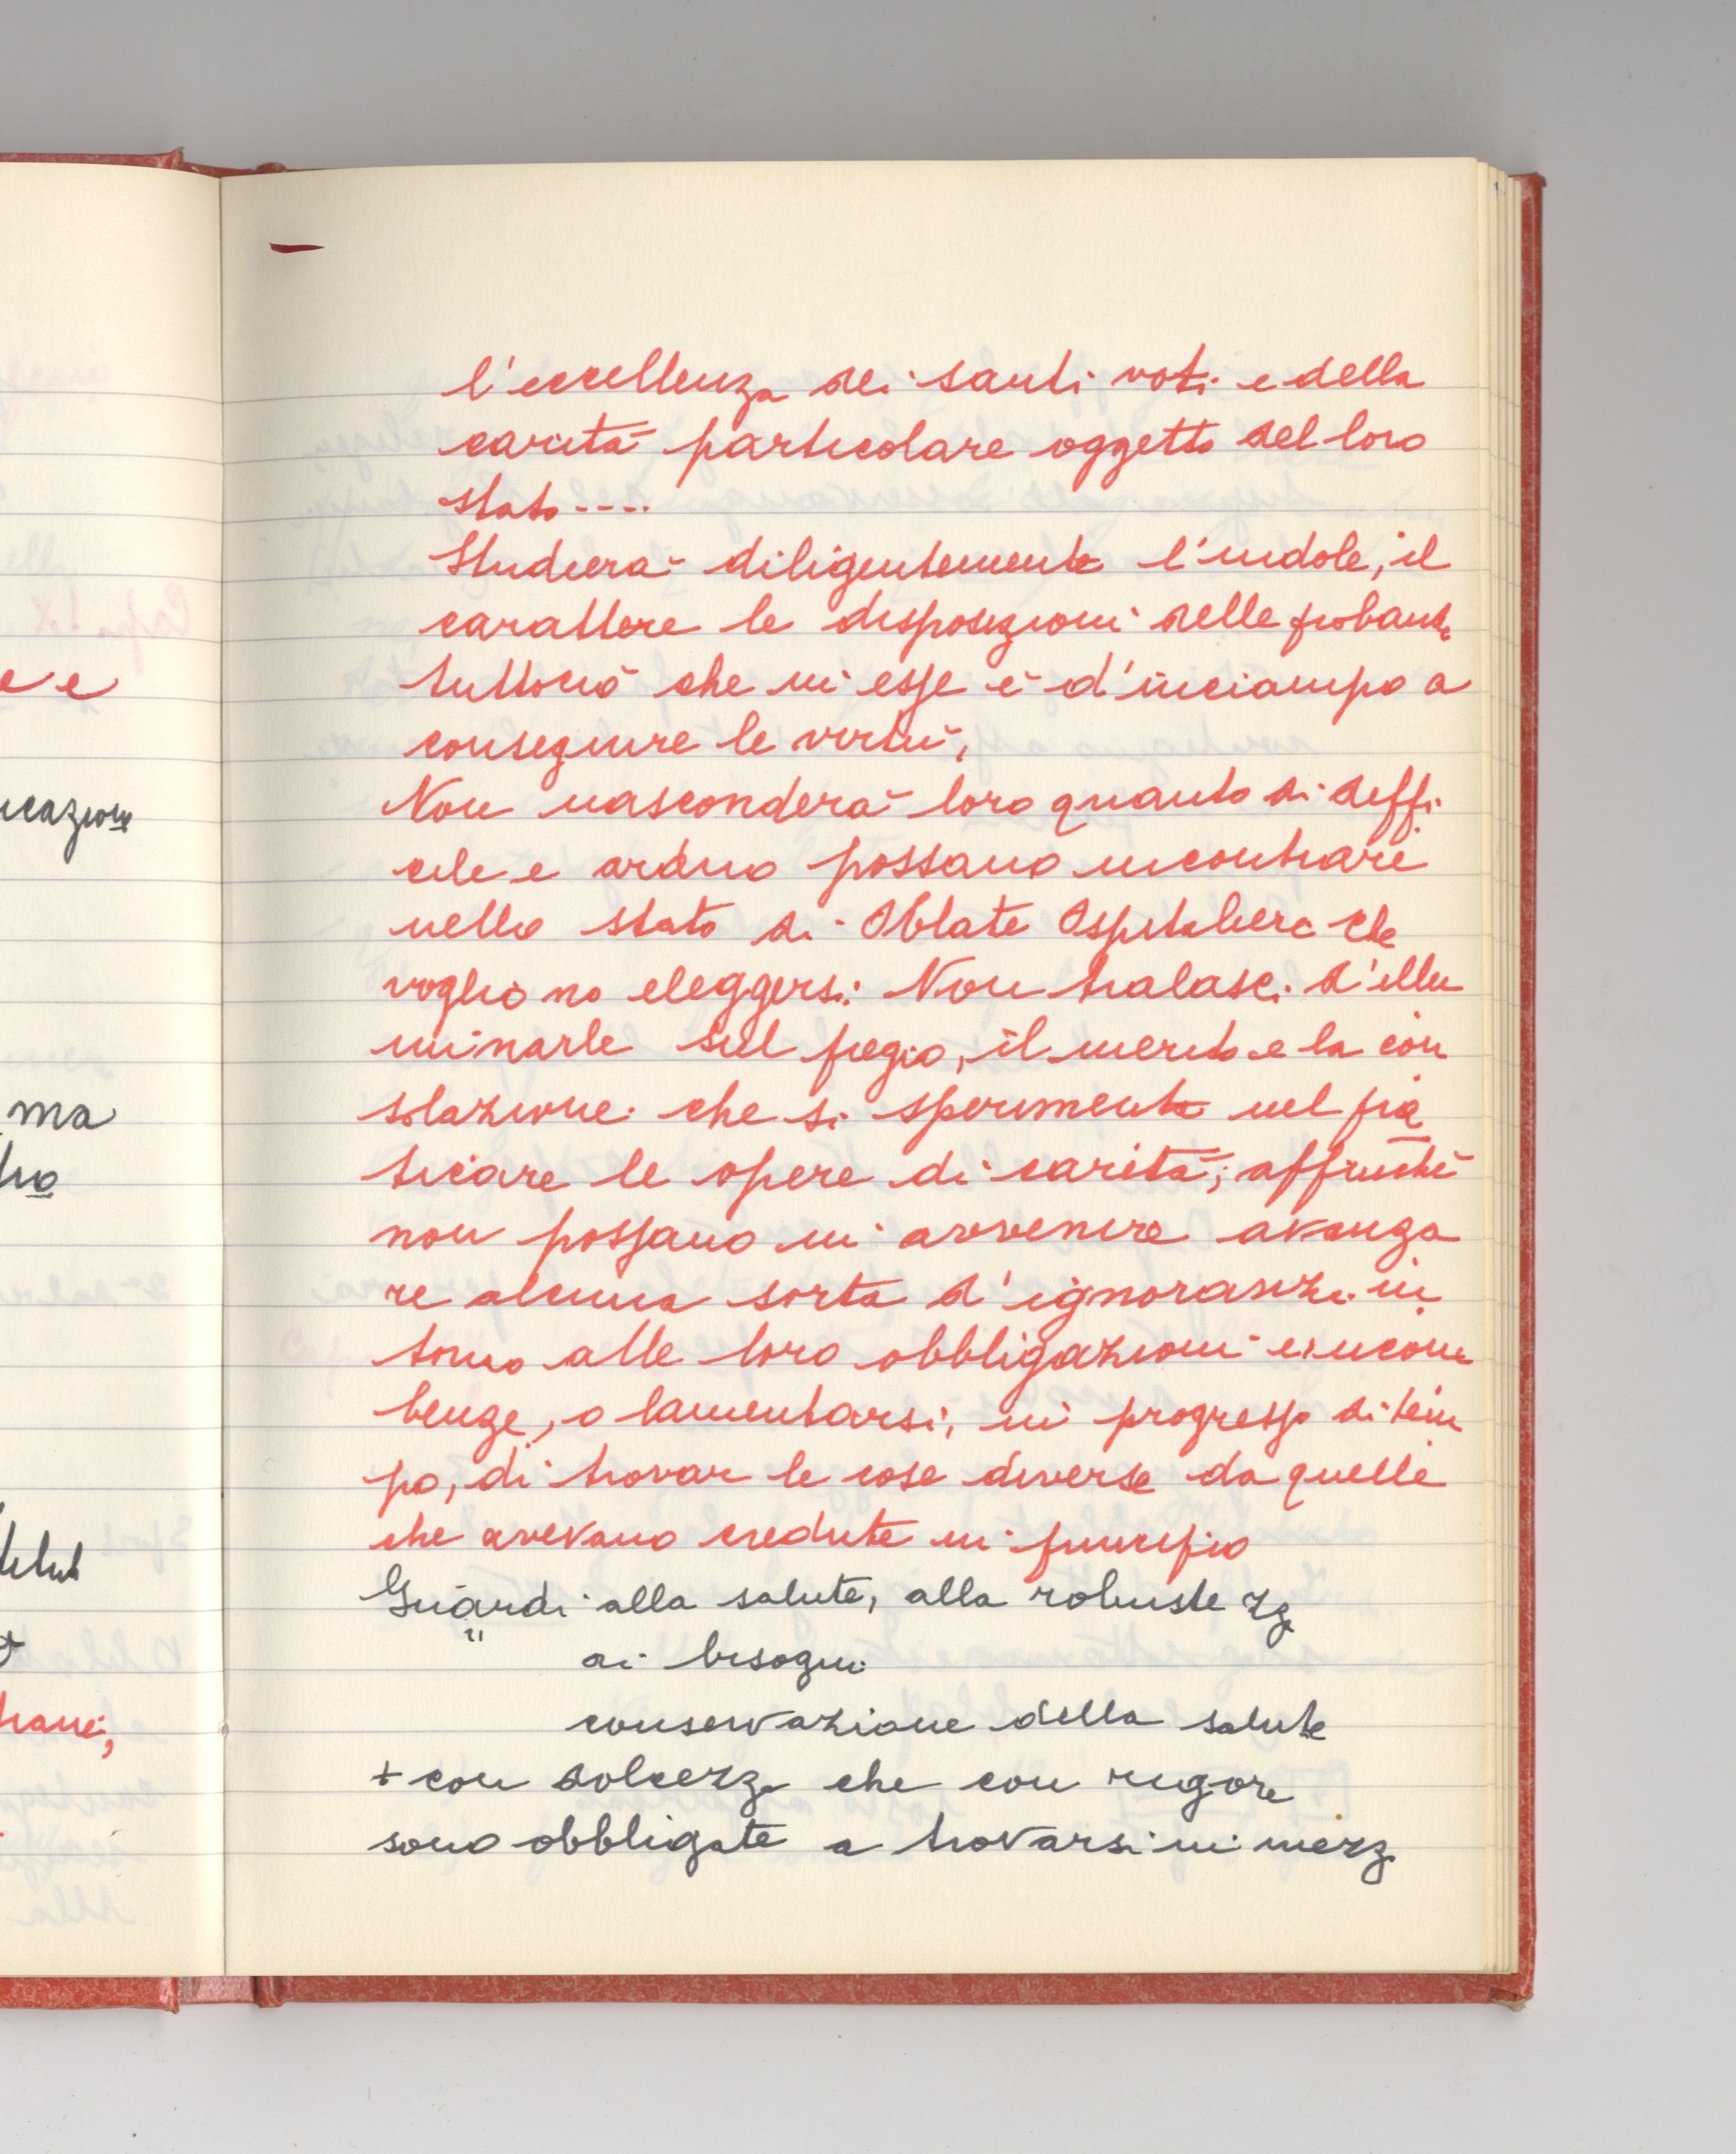 l'eccellenza dei santi voti e della
carità particolare oggetto del loro
stato----
Studierà diligentemente l'indole, il
carattere le disposizioni delle probanti
tuttociò che in esse è d'inciampo a
conseguire le virtù,
Non nasconderà loro quanto di diffi
cile e arduo possano incontrare
nello stato di Oblate Ospitaliere che
vogliono eleggersi: Non tralasci d'illu
minarle sul pregio, il merito e la con
solazione che si sperimenta nel pra
ticare le opere di carità; affinchè
non possano in avvenire avanza
re alcuna sorta d'ignoranza in
torno alle loro obbligazioni e incom
benze, o lamentarsi, in progresso di tem
po, di trovar le cose diverse da quelle
che avevano credute in principio
Guardi alla salute, alla robustezza
" ai bisogni
conservazione della salute
+ con dolcezza che con rigore
sono obbligate a trovarsi in mezz
e e
icazione
ma